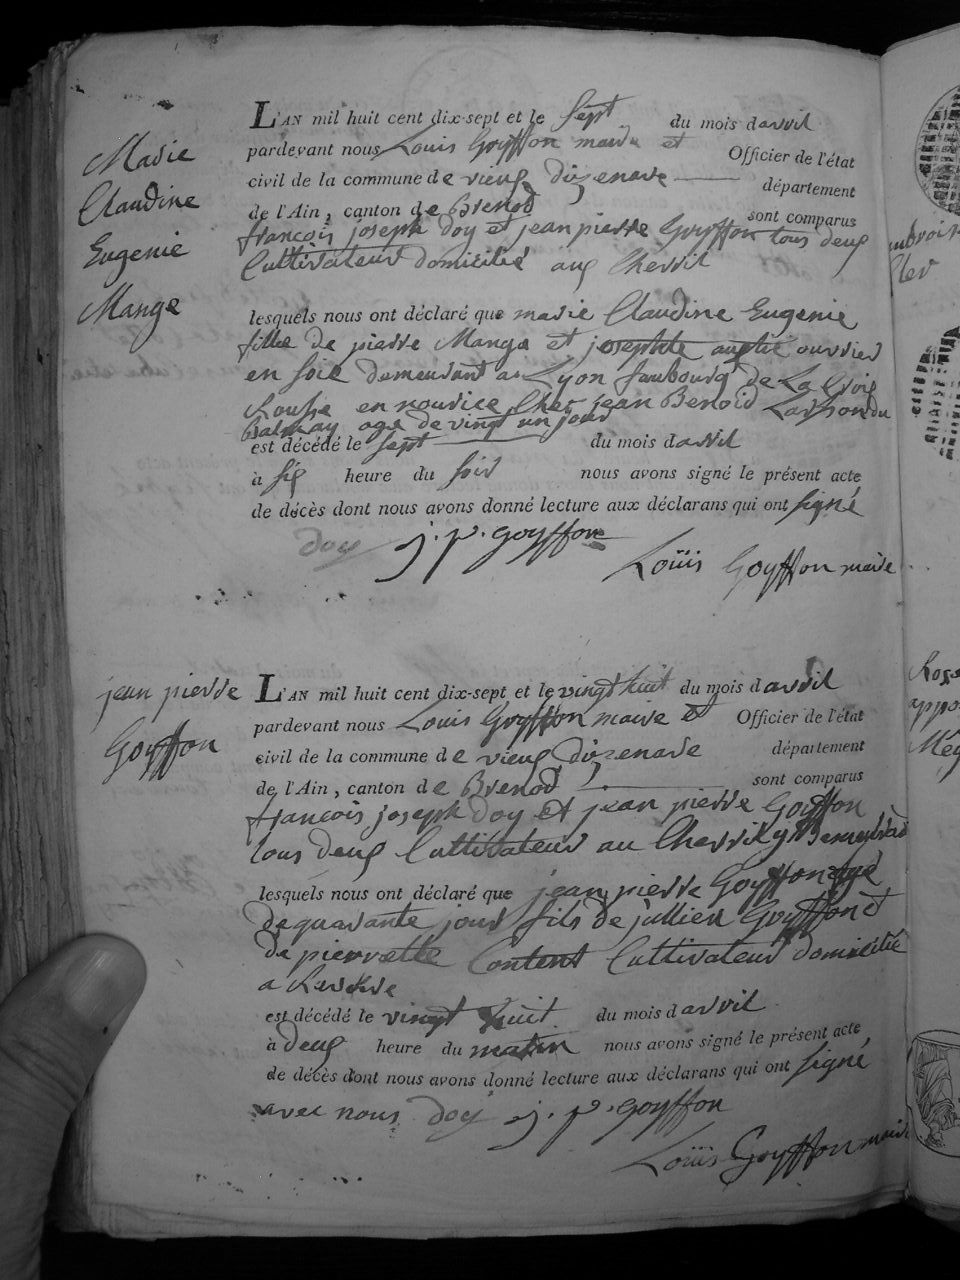 Marie
Claudine
Eugenie
Mange
L'AN mil huit cent dix-sept et le sept du mois d avril
pardevant nous Louis Goyffon maire et Officier de l'état
civil de la commune de vieux dizenave département
de l'Ain, canton de Brenod sont comparus
francois joseph doy et jean pierre Goyffon tous deux
Cultivateur domicilié aux Chevril
lesquels nous ont déclaré que marie Claudine Eugenie
fille de pierre Mange et josephte ouvrier
en soie demeurant a Lyon faubourg de La Croix
Rousse en nourice Chez jean Benoid du
Balmay age de vingt un jour
est décédé le sept du mois d avril
à six heure du soir nous avons signé le présent acte
de décès dont nous avons donné lecture aux déclarans qui ont signé
doy j. p. goyffon
Louis Goyffon maire
jean pierre
Goyffon
L'AN mil huit cent dix-sept et le vingt huit du mois d avril
pardevant nous Louis Goyffon maire et Officier de l'état
civil de la commune de vieux dizenave département
de l'Ain, canton de Brenod sont comparus
francois joseph doy et jean pierre Goyffon
tous deux Cultivateur au Chevril
lesquels nous ont déclaré que jean pierre Goyffon age
de quarante jour fils de jullien Goyffon et
de pierrette Content Cultivateur domicilié
a
est décédé le vingt huit du mois d avril
à deux heure du matin nous avons signé le présent acte
de décès dont nous avons donné lecture aux déclarans qui ont signé
avec nous doy j. p. goyffon
Louis Goyffon maire